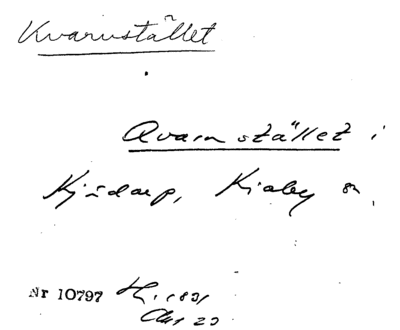 Kvarnstället
Qvarnstället i
Kjüdarp, Kiaby sn.
Nr 10797 H. 1831